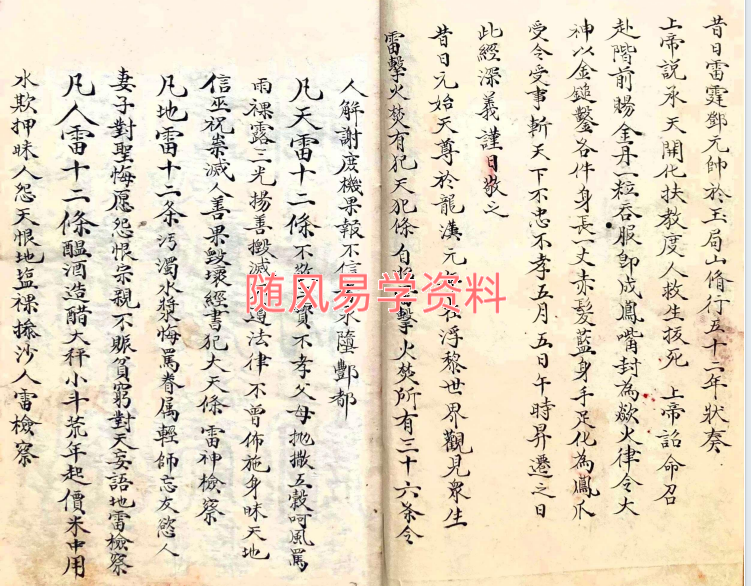 昔日雷霆鄧元帥於玉局山脩行五十二年狀奏
上帝説承天開化扶教度人救生拔死 上帝詔命召
赴階前賜金丹一粒吞服即成鳳嘴封為歘火律令大
神以金鎚鑿各件身長一丈赤髮藍身手足化為鳳爪
受令受事斬天下不忠不孝五月五日午時昇遷之日
此經深義謹日敬之
昔日元始天尊於龍漢元 浮黎世界觀見衆生
雷擊火焚有犯天犯條自 擊火焚所有三十六条令
人解謝度機果報不信 永墮酆都
凡天雷十二條不敬 寶不孝父母抛撒五穀呵風罵
雨裸露三光揚善毀滅 道法律不曾佈施身昧天地
信巫祝祟滅人善果毀壞經書犯大天條雷神檢察
凡地雷十二条汚濁水漿悔罵眷属輕師忘友慾人
妻子對聖悔愿怨恨宗親不賑貧窮對天妄語地雷檢察
凡人雷十二條醖酒造醋大秤小斗荒年起價米中用
水欺押昧人怨天恨地盐裸搽沙人雷檢察
随风易学资料